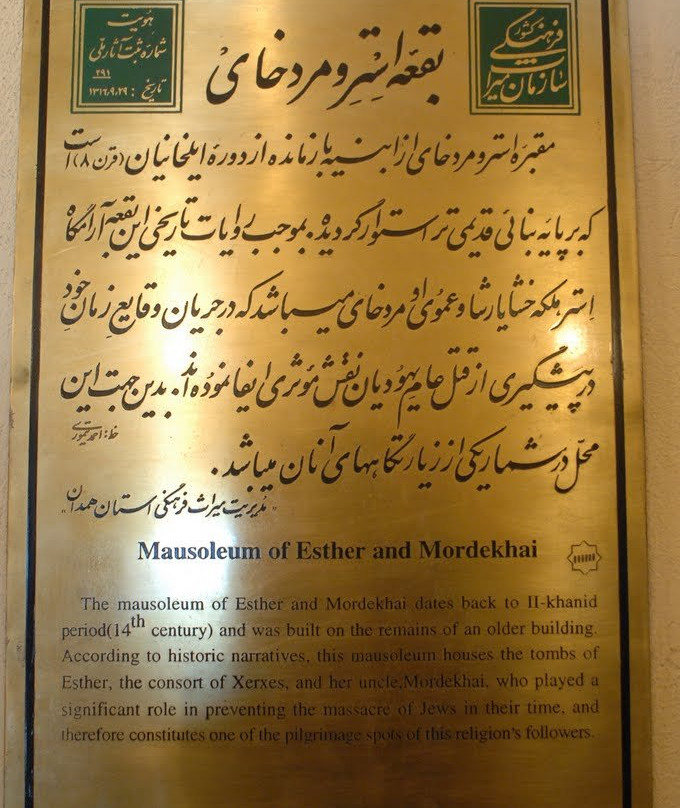 هویت
شماره ثبت آثار ملی
۲۹۱
تاریخ : ۱۳۱۶,۹,۲۹
بقعه اِستِر و مردخای
سازمان میراث
فرهنگی
کشور
مقبره استر و مردخای از ابنیه بازمانده از دوره ایلخانیان (قرن ۸) است
که بر پایه بنائی قدیمی تر استوار گردیده. بموجب روایات تاریخی این بقعه آرامگاه
اِستر ملکه خشایارشا و عموی او مردخای میباشد که در جریان وقایع زمان خود
در پیشگیری از قتل عام یهودیان نقش مؤثری ایفا نموده اند. بدین جهت این
خط: احمد تیموری
محل در شمار یکی از زیارتگاههای آنان میباشد.
"مدیریت میراث فرهنگی استان همدان"
Mausoleum of Esther and Mordekhai
The mausoleum of Esther and Mordekhai dates back to II-khanid
period(14th century) and was built on the remains of an older building.
According to historic narratives, this mausoleum houses the tombs of
Esther, the consort of Xerxes, and her uncle,Mordekhai, who played a
significant role in preventing the massacre of Jews in their time, and
therefore constitutes one of the pilgrimage spots of this religion's followers.